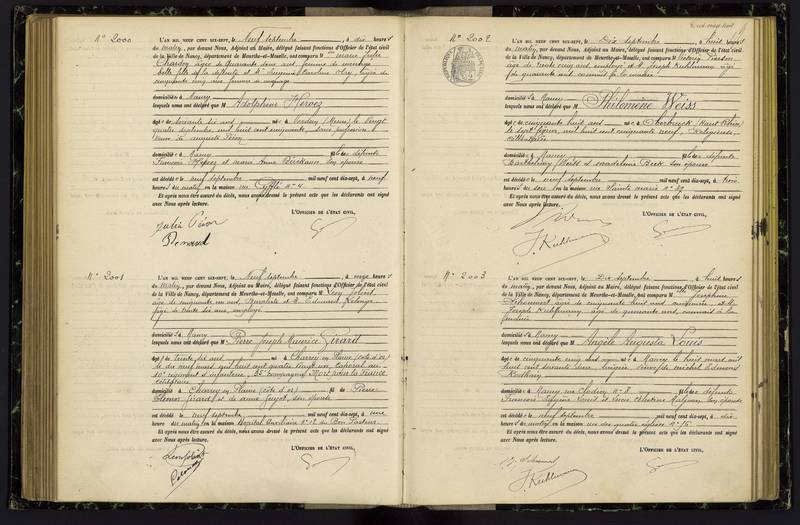 N° 2000
L'AN MIL NEUF CENT DIX-SEPT, le Neuf septembre, à dix heures
du matin, par devant Nous, Adjoint au Maire, délégué faisant fonctions d'Officier de l'état civil
de la Ville de Nancy, département de Meurthe-et-Moselle, ont comparu M
Chardon âgée de quarante deux ans, femme de ménage
belle fille de la défunte et
cinquante cinq ans femme de ménage
domiciliés à Nancy
lesquels nous ont déclaré que M Adolphine Hervez
âgée de soixante dix ans, née à Verdun (Meuse) le vingt
quatre septembre mil huit cent quarante, sans profession
veuve de Auguste Péron
domiciliée à Nancy, fille de défunts
François Hervez et Marie Anne son épouse
est décédée le neuf septembre mil neuf cent dix-sept, à neuf
heures du matin en la maison rue Cyfflé n° 4
Et après nous être assuré du décès, nous avons dressé le présent acte que les déclarants ont signé
avec Nous après lecture.
L'OFFICIER DE L'ÉTAT CIVIL,
Julia Péron
Renaud
N° 2001
L'AN MIL NEUF CENT DIX-SEPT, le Neuf septembre, à onze heures
du matin, par devant Nous, Adjoint au Maire, délégué faisant fonctions d'Officier de l'état civil
de la Ville de Nancy, département de Meurthe-et-Moselle, ont comparu M
âgé de cinquante un ans, et M. Edouard
âgé de trente six ans, employé
domiciliés à Nancy
lesquels nous ont déclaré que M Pierre Joseph Maurice Girard
âgé de trente six ans, né à Charrey en Plaine (Côte d'or)
le dix neuf mars mil huit cent quatre vingt un, caporal au
10e régiment d'infanterie, 35e compagnie Mort pour la France
célibataire
domicilié à Charrey en Plaine (Côte d'or), fils de Pierre
Girard et de Anne Guyot, son épouse
est décédé le neuf septembre mil neuf cent dix-sept, à une
heure du matin en l'hôpital auxiliaire n° 12 du Bon Pasteur
Et après nous être assuré du décès, nous avons dressé le présent acte que les déclarants ont signé
avec Nous après lecture.
L'OFFICIER DE L'ÉTAT CIVIL,
N° 2002
L'AN MIL NEUF CENT DIX-SEPT, le Dix septembre, à huit heures
du matin, par devant Nous, Adjoint au Maire, délégué faisant fonctions d'Officier de l'état civil
de la Ville de Nancy, département de Meurthe-et-Moselle, ont comparu M
âgé de trente cinq ans, employé et M. Joseph Kuhlmann âgé
de quarante ans
domiciliés à Nancy
lesquels nous ont déclaré que M Philomène Weiss
âgée de cinquante huit ans, née à Oberbruck (Haut Rhin)
le sept février mil huit cent cinquante neuf, Religieuse,
célibataire
domiciliée à Nancy, fille de défunts
Barthélemy Weiss et Madeleine Beck son épouse
est décédée le neuf septembre mil neuf cent dix-sept, à trois
heures du soir en la maison rue Sainte Marie n° 29
Et après nous être assuré du décès, nous avons dressé le présent acte que les déclarants ont signé
avec Nous après lecture.
L'OFFICIER DE L'ÉTAT CIVIL,
J. Kuhlmann
N° 2003
L'AN MIL NEUF CENT DIX-SEPT, le Dix septembre, à huit heures
du matin, par devant Nous, Adjoint au Maire, délégué faisant fonctions d'Officier de l'état civil
de la Ville de Nancy, département de Meurthe-et-Moselle, ont comparu M Joséphine
âgée de cinquante huit ans, et M.
Joseph Kuhlmann, âgé de quarante ans
domiciliés à Nancy
lesquels nous ont déclaré que M Angèle Augusta Louis
âgée de cinquante cinq ans, née à Nancy le huit mars mil
huit cent soixante deux, lingère, veuve de Michel Edmond
domiciliée à Nancy, n° 8, fille de défunts
François Louis et son épouse
est décédée le neuf septembre mil neuf cent dix-sept, à dix
heures du matin en la maison rue des quatre églises n°
Et après nous être assuré du décès, nous avons dressé le présent acte que les déclarants ont signé
avec Nous après lecture.
L'OFFICIER DE L'ÉTAT CIVIL,
J. Kuhlmann